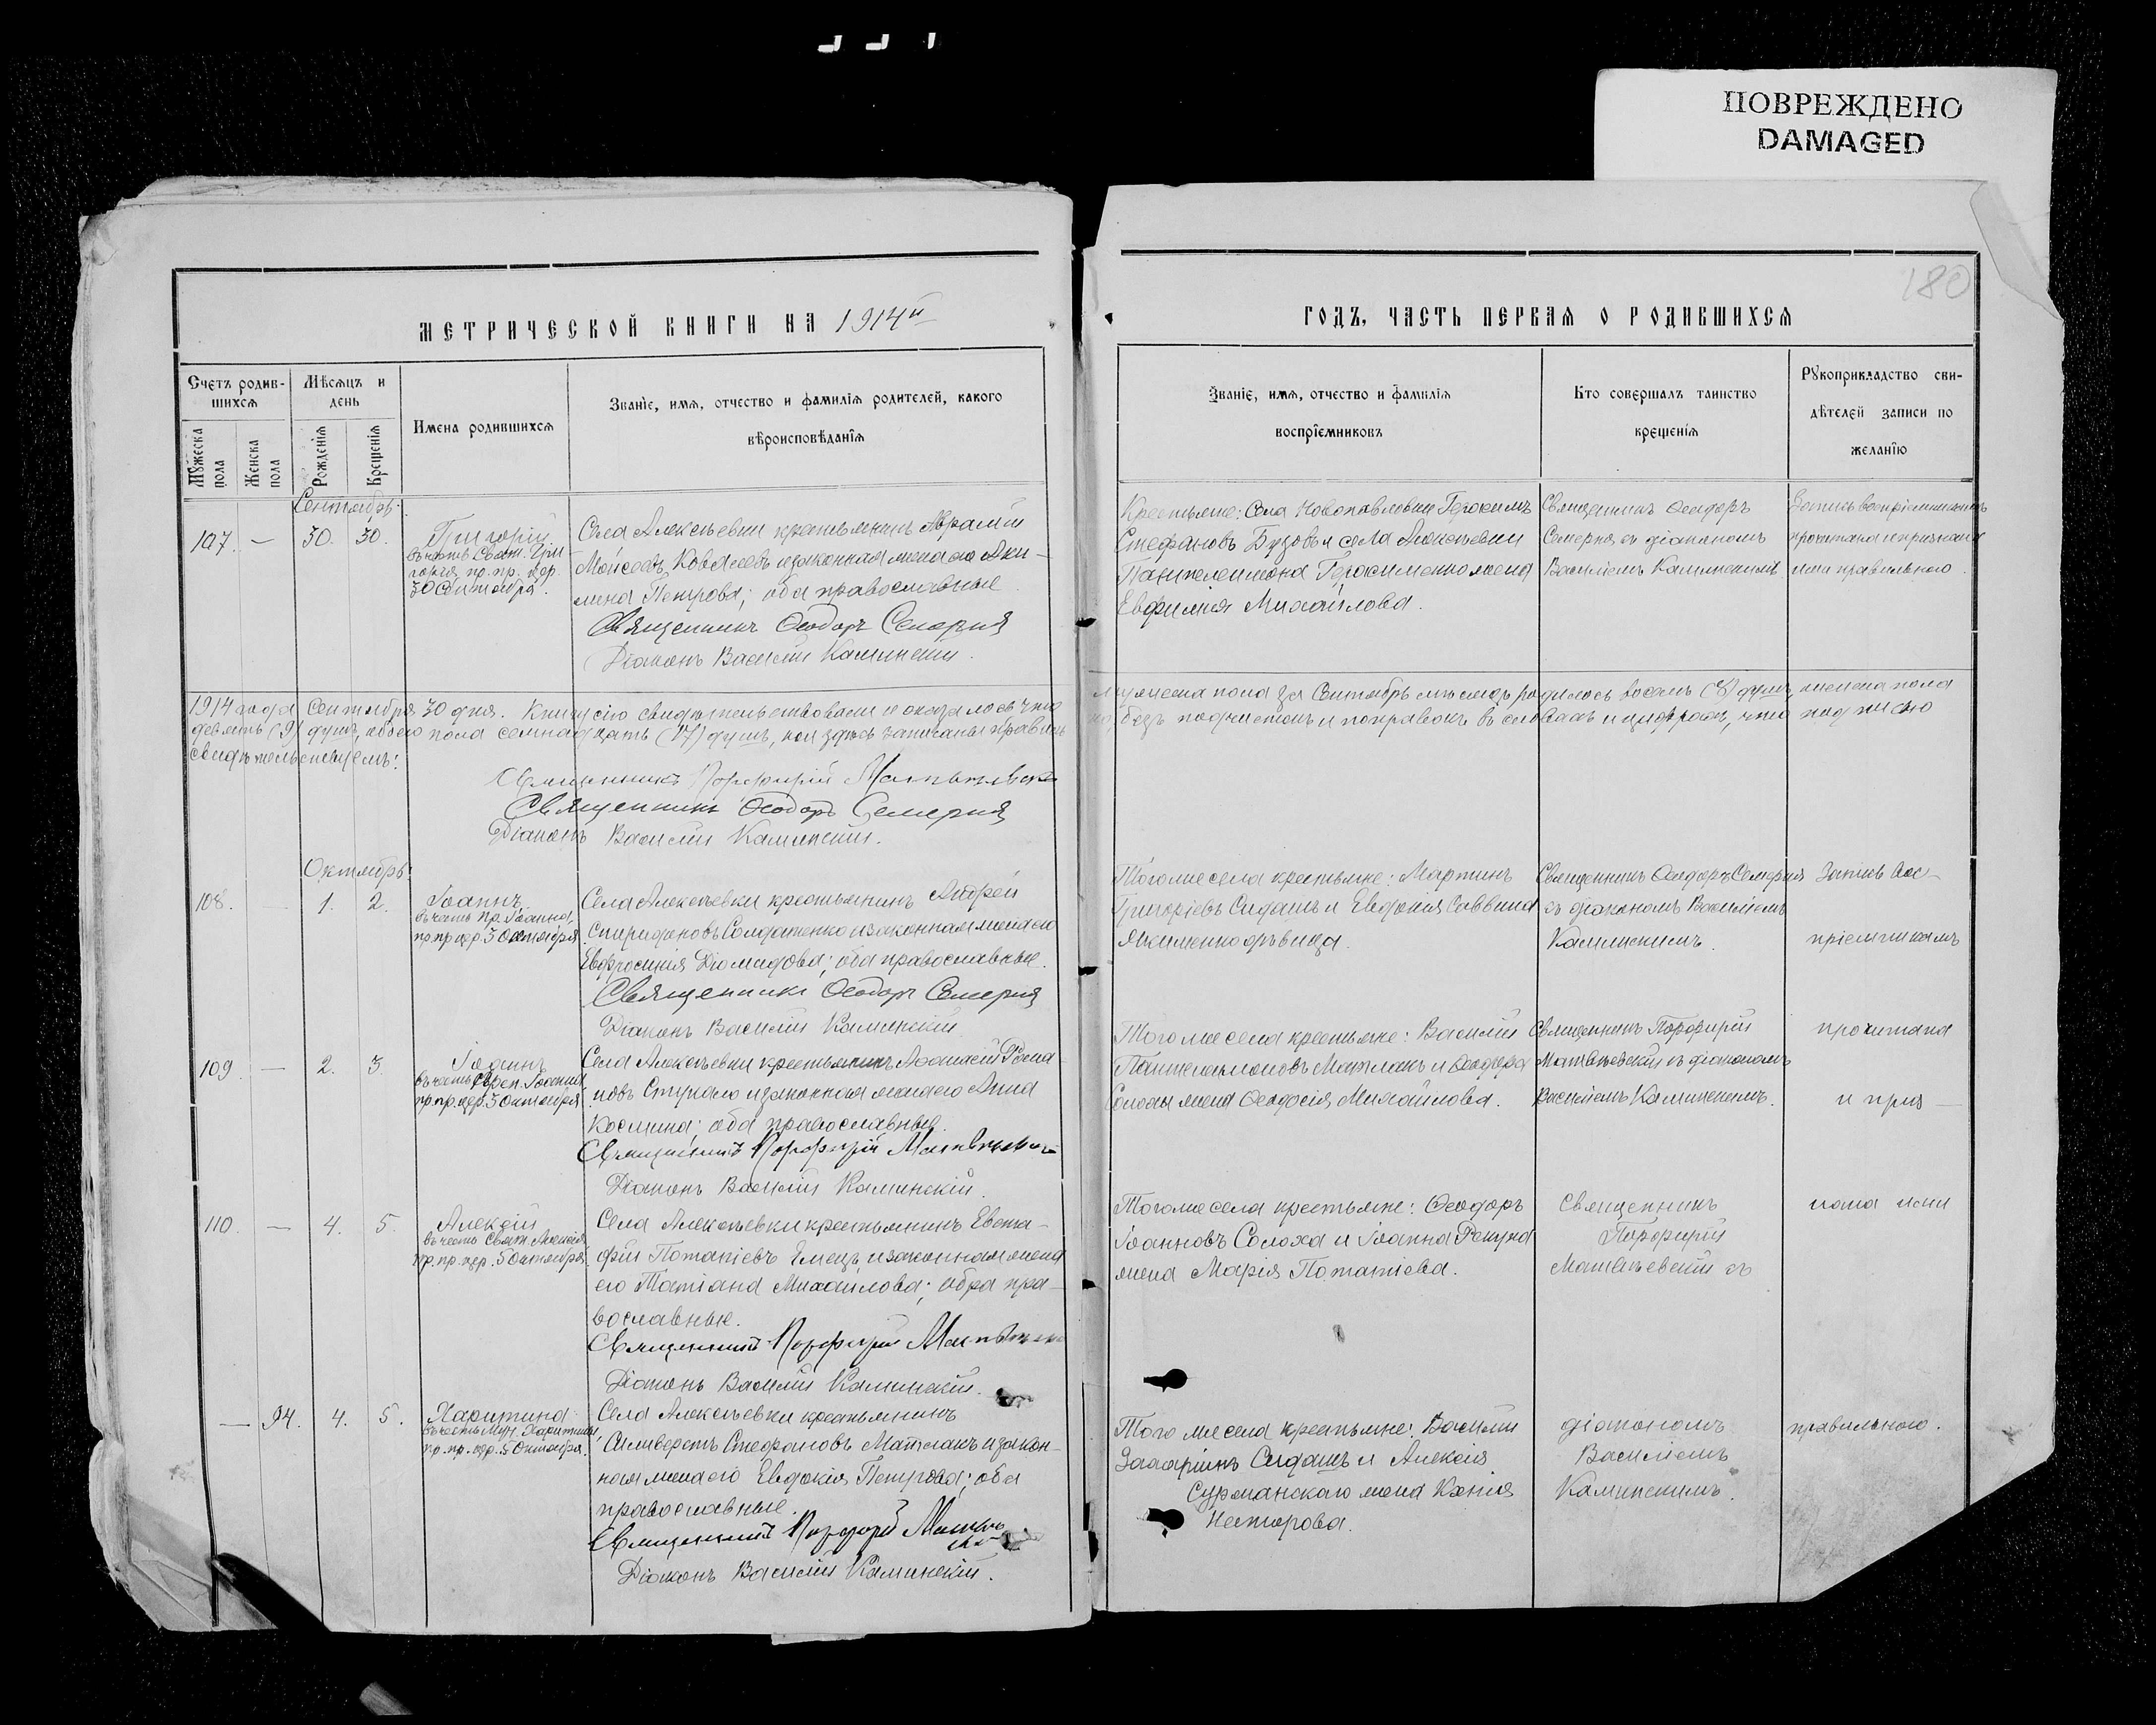 ПОВРЕЖДЕНО
DAMAGED
180
МЕТРИЧЕСКОЙ КНИГИ НА 1914й
ГОДЪ, ЧАСТЬ ПЕРВАЯ О РОДИВШИХСЯ
Счетъ родив-
шихся
Мѣсяцъ и
день
Имена родившихся
Званіе, имя, отчество и фамилія родителей, какого
вѣроисповѣданія
Мужеска
пола
Женска
пола
Рожденія
Крещенія
Званіе, имя, отчество и фамилія
воспріемниковъ
Кто совершалъ таинство
крещенія
Рукоприкладство сви-
дѣтелей записи по
желанію
Сентябрь.
107. — 30. 30.
Григорій
въ честь Свят. Гри-
горія пр. пр. цер.
30 Сентября.
Села Алексѣевки крестьянинъ Аврамій
Моисеевъ Ковалевъ и законная жена его Аки-
лина Петрова; оба православные
Священникъ Ѳеодоръ Семерня
Діаконъ Василій Каминскій.
Крестьяне: Села Новопавловки Герасимъ
Стефановъ Бузовъ и села Алексѣевки
Пантелеимона Герасименко жена
Евфимія Михайлова.
Священникъ Ѳеодоръ
Семерня съ діакономъ
Василіемъ Каминскимъ
Запись воспріемникамъ
прочитана и признана
ими правильною.
1914 года Сентября 30 дня. Книгу сію свидѣтельствовали и оказалось что мужеска пола за Сентябрь мѣсяцъ родилось восемь (8) душъ, женска пола
девять (9) душъ, обоего пола семнадцать (17) душъ, кои здѣсь записаны правильно, безъ подчистокъ и поправокъ въ словахъ и цифрахъ, что подписью
свидѣтельствуемъ:
Священникъ Порфирій Матвѣевскій
Священникъ Ѳеодоръ Семерня
Діаконъ Василій Каминскій.
Октябрь.
108. — 1. 2.
Іоаннъ
въ честь Пр. Іоанна,
пр. пр. цер. 3 Октября.
Села Алексѣевки крестьянинъ Андрей
Спиридоновъ Солдатенко и законная жена его
Евфросинія Діомидова; оба православные.
Священникъ Ѳеодоръ Семерня
Діаконъ Василій Каминскій
Того же села крестьяне: Мартинъ
Григоріевъ Сидашъ и Евдокія Саввина
Якименко дѣвица.
Священникъ Ѳеодоръ Семерня
съ діакономъ Василіемъ
Каминскимъ.
Запись вос-
пріемникамъ
109. — 2. 3.
Іоаннъ
въ честь Іоанна
пр. пр. цер. 3 Октября.
Села Алексѣевки крестьянинъ Аѳанасій Рома-
новъ Стукало и законная жена его Анна
Космина; оба православные.
Священникъ Порфирій Матвѣевскій
Діаконъ Василій Каминскій.
Того же села крестьяне: Василій
Пантелеимоновъ Матлакъ и Ѳеодора
Солохи жена Ѳеодосія Михайлова.
Священникъ Порфирій
Матвѣевскій съ діакономъ
Василіемъ Каминскимъ.
прочитана
и приз-
110. — 4. 5.
Алексій
въ честь Свят. Алексія
пр. пр. цер. 5 Октября.
Села Алексѣевки крестьянинъ Евста-
фій Потапіевъ Емецъ и законная жена
его Татіана Михайлова; оба пра-
вославные.
Священникъ Порфирій
Діаконъ Василій Каминскій.
Того же села крестьяне: Ѳеодоръ
Іоанновъ Солоха и Іоанна Рекуна
жена Марія Потапіева.
Священникъ
Порфирій
Матвѣевскій съ
нана ими
— 94. 4. 5.
Харитина
въ честь Муч. Харитины,
пр. пр. цер. 5 Октября.
Села Алексѣевки крестьянинъ
Силиверстъ Стефановъ Матлакъ и закон-
ная жена его Евдокія Петрова; оба
православные.
Священникъ Порфирій
Діаконъ Василій Каминскій.
Того же села крестьяне: Василій
Захаріинъ Сидашъ и Алексія
Сурманскаго жена Ксенія
Несторова.
діакономъ
Василіемъ
Каминскимъ.
правильною.